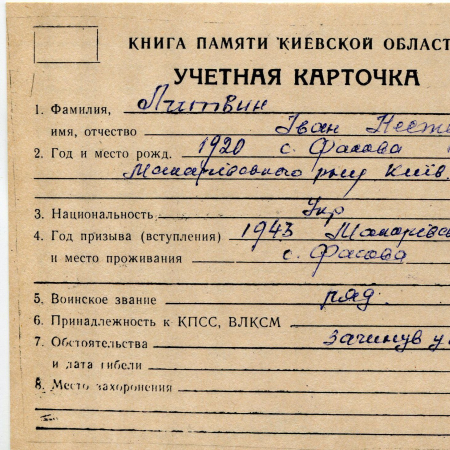 КНИГА ПАМЯТИ КИЕВСКОЙ ОБЛАСТ
УЧЕТНАЯ КАРТОЧКА
1. Фамилия, Литвин
имя, отчество Іван Несте
2. Год и место рожд. 1920 с. Фасова
Макарівського р-ну Київ
3. Национальность Укр
4. Год призыва (вступления) 1943 Макарівс
и место проживания с. Фасова
5. Воинское звание ряд.
6. Принадлежность к КПСС, ВЛКСМ
7. Обстоятельства загинув у
и дата гибели
8. Место захоронения